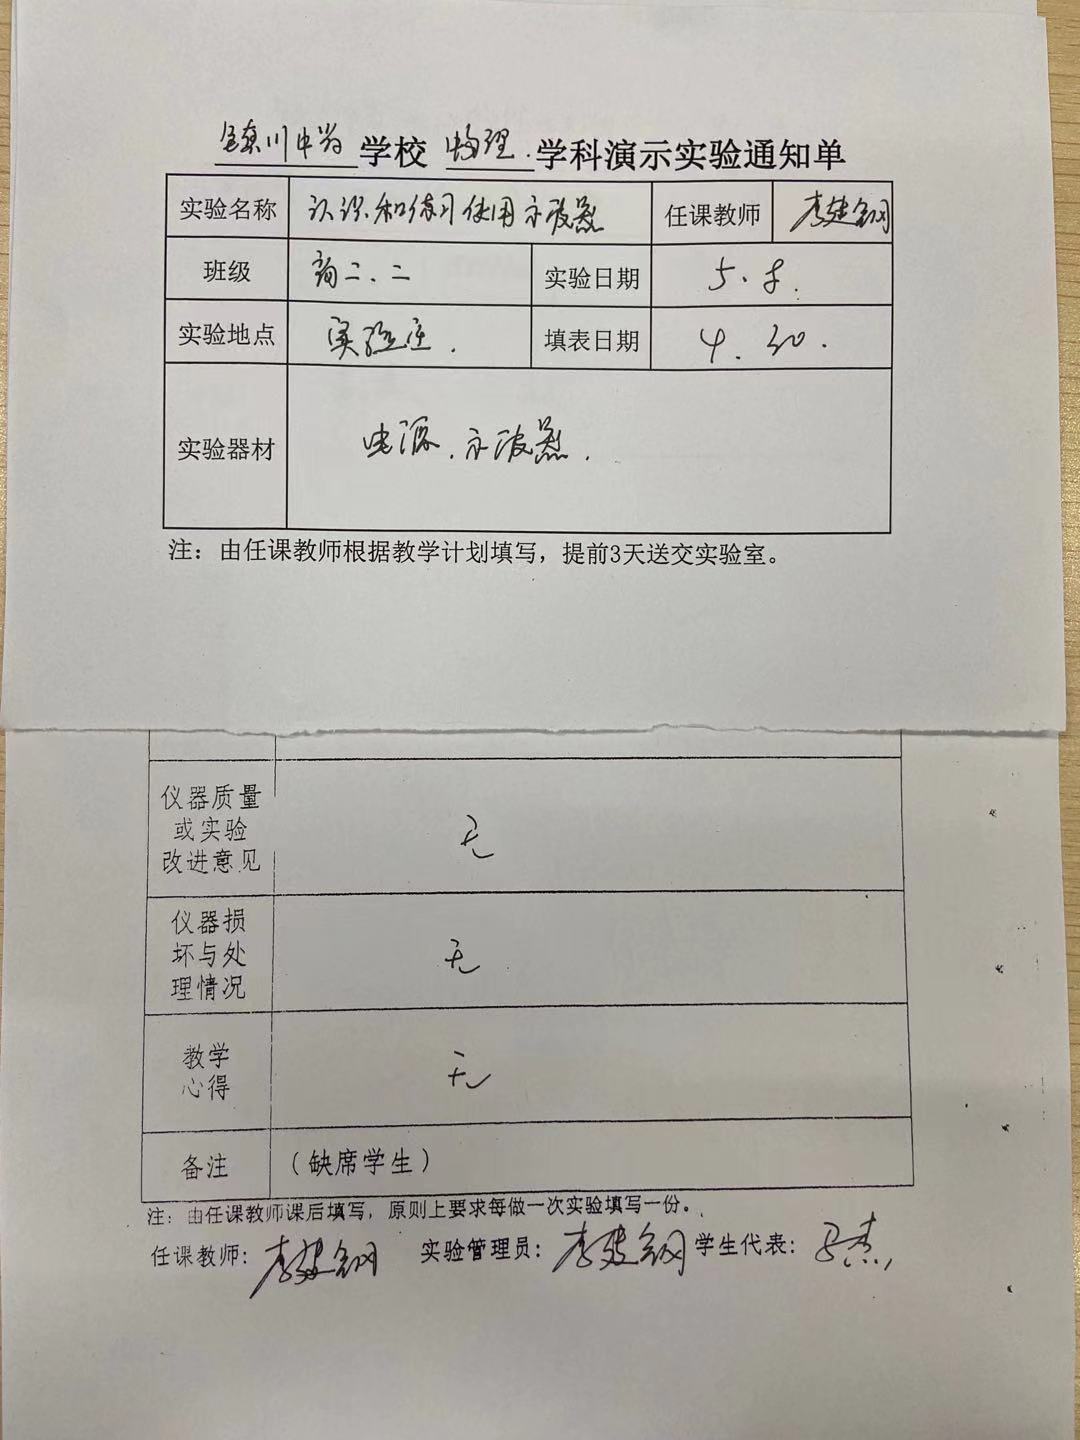 川中学学校 物理.学科演示实验通知单
实验名称 认识和练习使用示波器 任课教师 李建钢
班级 高二.二 实验日期 5.8.
实验地点 实验室. 填表日期 4.30.
实验器材 电源.示波器.
注：由任课教师根据教学计划填写，提前3天送交实验室。
仪器质量
或实验
改进意见
无
仪器损
坏与处
理情况
无
教学
心得
无
备注 （缺席学生）
注：由任课教师课后填写，原则上要求每做一次实验填写一份。
任课教师：李建钢 实验管理员：李建钢 学生代表：马杰